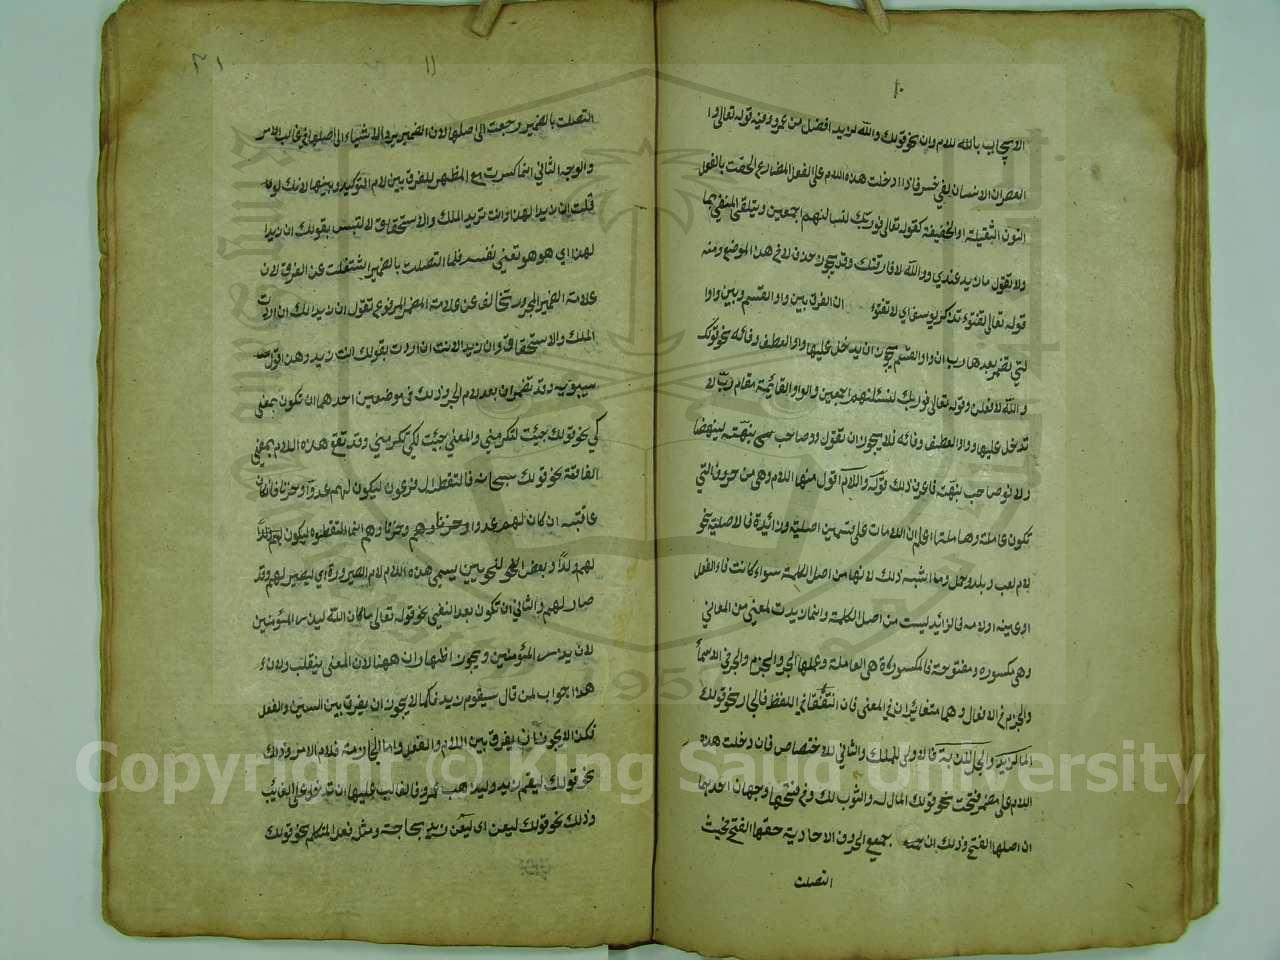 ١٠
الايجاب بالله للام وان نحو قولك والله لزيد افضل من عمرو وفيه قوله تعالى وا
العصر ان الانسان لفي خسر فاذا ادخلت هذه اللام على الفعل المضارع الحقت بالفعل
النون الثقيلة او الخفيفة كقوله تعالى فوربك لنسألنهم اجمعين ويتلقى المنفي بما
ولا تقول ما زيد عندي ووالله لا فارقتك وقد يجوز حذف لا في هذا الموضع ومنه
قوله تعالى تفتؤ تذكر يوسف اي لا تفتؤ ان الفرق بين واو القسم وبين واوا
لتي تضمر بعدها رب ان واو القسم يجوز ان يدخل عليها واو العطف وفائه نحو قولك
و الله لافعلن وقوله تعالى فوربك لنسئلنهم اجمعين والواو القائمة مقام رب لا
تدخل عليها وواو العطف وفائه فلا يجوز ان تقول ووصاحب نبهته لينهضا
ولا فوصاحب نبهت فاعرف ذلك قوله واللام اقول منها اللام وهي من حروف التي
تكون عاملة وهاملة اعلم ان اللامات على قسمين اصلية وزائدة فالاصلية نحو
لام لعب وبلد وحمل وما اشبه ذلك لانها من اصل الكلمة سواء كانت فاء الفعل
او عينه او لامه فالزائد ليست من اصل الكلمة وانما زيدت لمعنى من المعاني
وهي مكسوره ومفتوحة فالمكسورة هي العاملة وعملها الجر والجزم والجر في الاسمآ
والجزم في الافعال وهما متغائران في المعنى فان اتفقا في اللفظ فالجار نحو قولك
المال لزيد والجل للدابة فالاولى للملك والثاني للاختصاص فان دخلت هذه
اللام على مضمر فتحت نحو قولك المال له والثوب لك وفي فتحها وجهان احدهما
ان اصلها الفتح وذلك ان جميع الحروف الاحادية حقها الفتح فحيث
اتصلت
١١
التصلت بالضمير رجعت الى اصلها لان الضمير يرد الاشياء الى اصلها في غالب الامر
والوجه الثاني انما كسرت مع المظهر للفرق بين لام التوكيد وبينها لانك لو
قلت ان زيدا لهذا وانت تريد الملك والاستحقاق لالتبس بقولك ان زيدا
لهذا اي هو هو تعني نفسه فلما التصلت بالضمير اشتغلت عن الفرق لان
علامة الضمير المجرور تخالف عن علامة المضمر المرفوع تقول ان زيدا لك ان اردت
الملك والاستحقاق وان زيدا لانت ان اردت بقولك انت زيد وهذا قول
سيبويه وقد تضمر ان بعد لام الجر وذلك في موضعين احدهما ان تكون بمعنى
كي نحو قولك جيئت لتكرمني والمعنى جيئت لكي تكرمني وقد تقع هذه اللام بمعنى
العاقبة نحو قولك سبحانه فالتقطه ال فرعون ليكون لهم عدوا وحزنا فانكان
عاقبته ان كان لهم عدوا وحزنا وهم وحزنا وهم انما التقطوه ليكون لهم ولدا
لهم ولدا وبعض النحو لنحويين يسمي هذه اللام لام الصيرورة اي ليصير لهم وقد
صار لهم والثاني ان تكون بعد النفي نحو قوله تعالى ما كان الله ليذر المؤمنين
لان يذر المؤمنين ويجوز اظهار ان ههنا لان المعنى ينقلب ولان
هذا جواب لمن قال سيقوم زيد فكما لا يجوز ان يفرق بين السين والفعل
فكذ لا يجوز ان يفرق بين اللام والفعل واما الجازمة فلام الامر وذلك
نحو قولك ليقم زيد وليذهب عمرو فالغالب عليها ان تدخل على الغائب
وذلك نحو قولك ليعن اي ليعن زيد بحاجة ومثل فعل المتكلم نحو قولك
Copyright © King Saud University